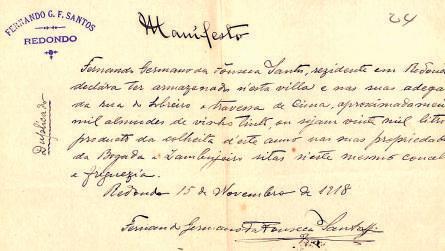 FERNANDO G. F. SANTOS
REDONDO
24
Manifesto
Duplicado
Fernando Germano da Fonseca Santos, rezidente em Redondo
declara ter armazenado n'esta villa e nas suas adegas
da rua do e travessa de Cima, aproximadamente
mil almudes de vinho tinto, ou sejam vinte mil litros
producto da colheita d'este anno nas suas propriedades
da Bogada e Zambujeiro sitas n'este mesmo concelho
e freguezia.
Redondo 15 de Novembro de 1918
Fernando Germano da Fonseca Santos